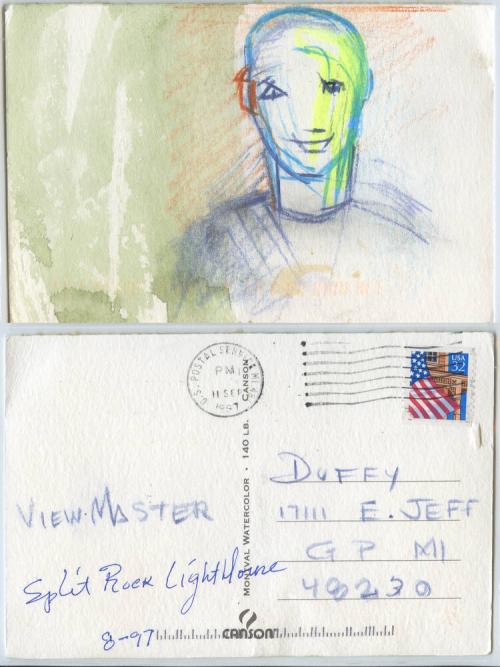 U.S. POSTAL SERVICE MI 482
PM
11 SEP
1997
USA
32
MONTVAL WATERCOLOR • 140 LB. CANSON
DUFFY
17111 E. JEFF
G P MI
48230
VIEW-MASTER
Split Rock Lighthouse
8-97
CANSON